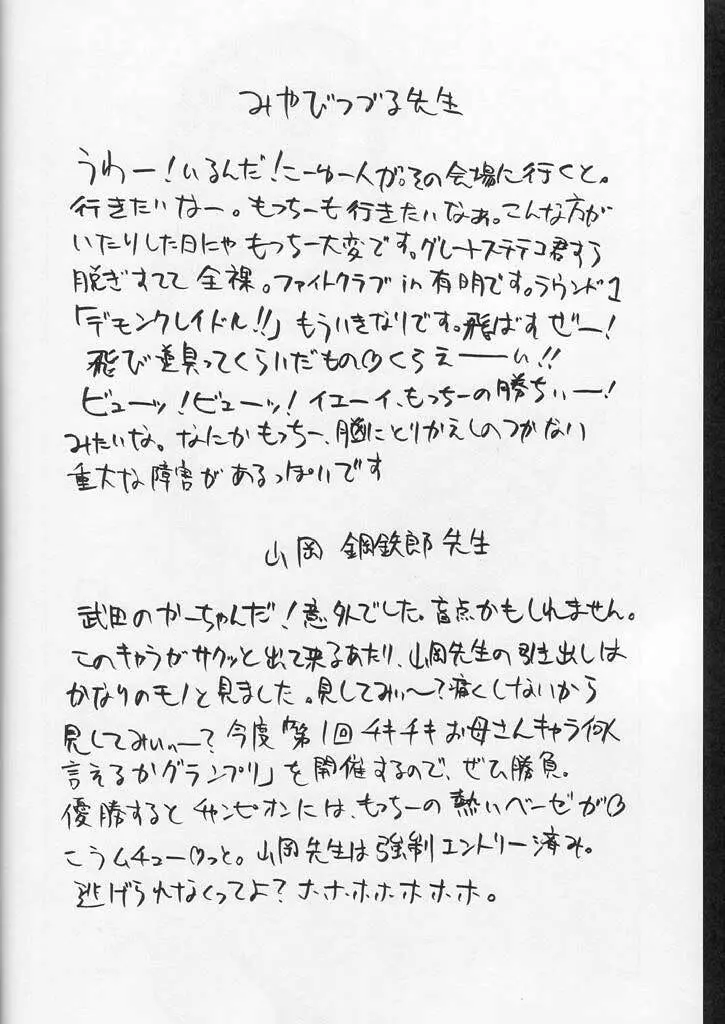 みやびつづる先生
うわー！いるんだ！こーゆー人が。その会場に行くと。
行きたいなー。もっちーも行きたいなぁ。こんな方が
いたりした日にゃもっちー大変です。グレートステテコ君すら
脱ぎすてて全裸。ファイトクラブin有明です。ラウンド1
「デモンクレイドル!!」もういきなりです。飛ばすぜー！
飛び道具ってくらいだもの♡くらえーーい!!
ビューッ！ビューッ！イエーイ、もっちーの勝ちぃー！
みたいな。なにかもっちー、脳にとりかえしのつかない
重大な障害があるっぽいです
山岡鋼鉄郎先生
武田のかーちゃんだ！意外でした。盲点かもしれません。
このキャラがサクッと出て来るあたり、山岡先生の引き出しは
かなりのモノと見ました。見してみぃ〜？痛くしないから
見してみぃぃ〜？今度「第1回チキチキお母さんキャラ何人
言えるかグランプリ」を開催するので、ぜひ勝負。
優勝するとチャンピオンには、もっちーの熱いベーゼが♡
こうムチュー♡っと。山岡先生は強制エントリー済み。
逃げられなくってよ？ホホホホホホホ。